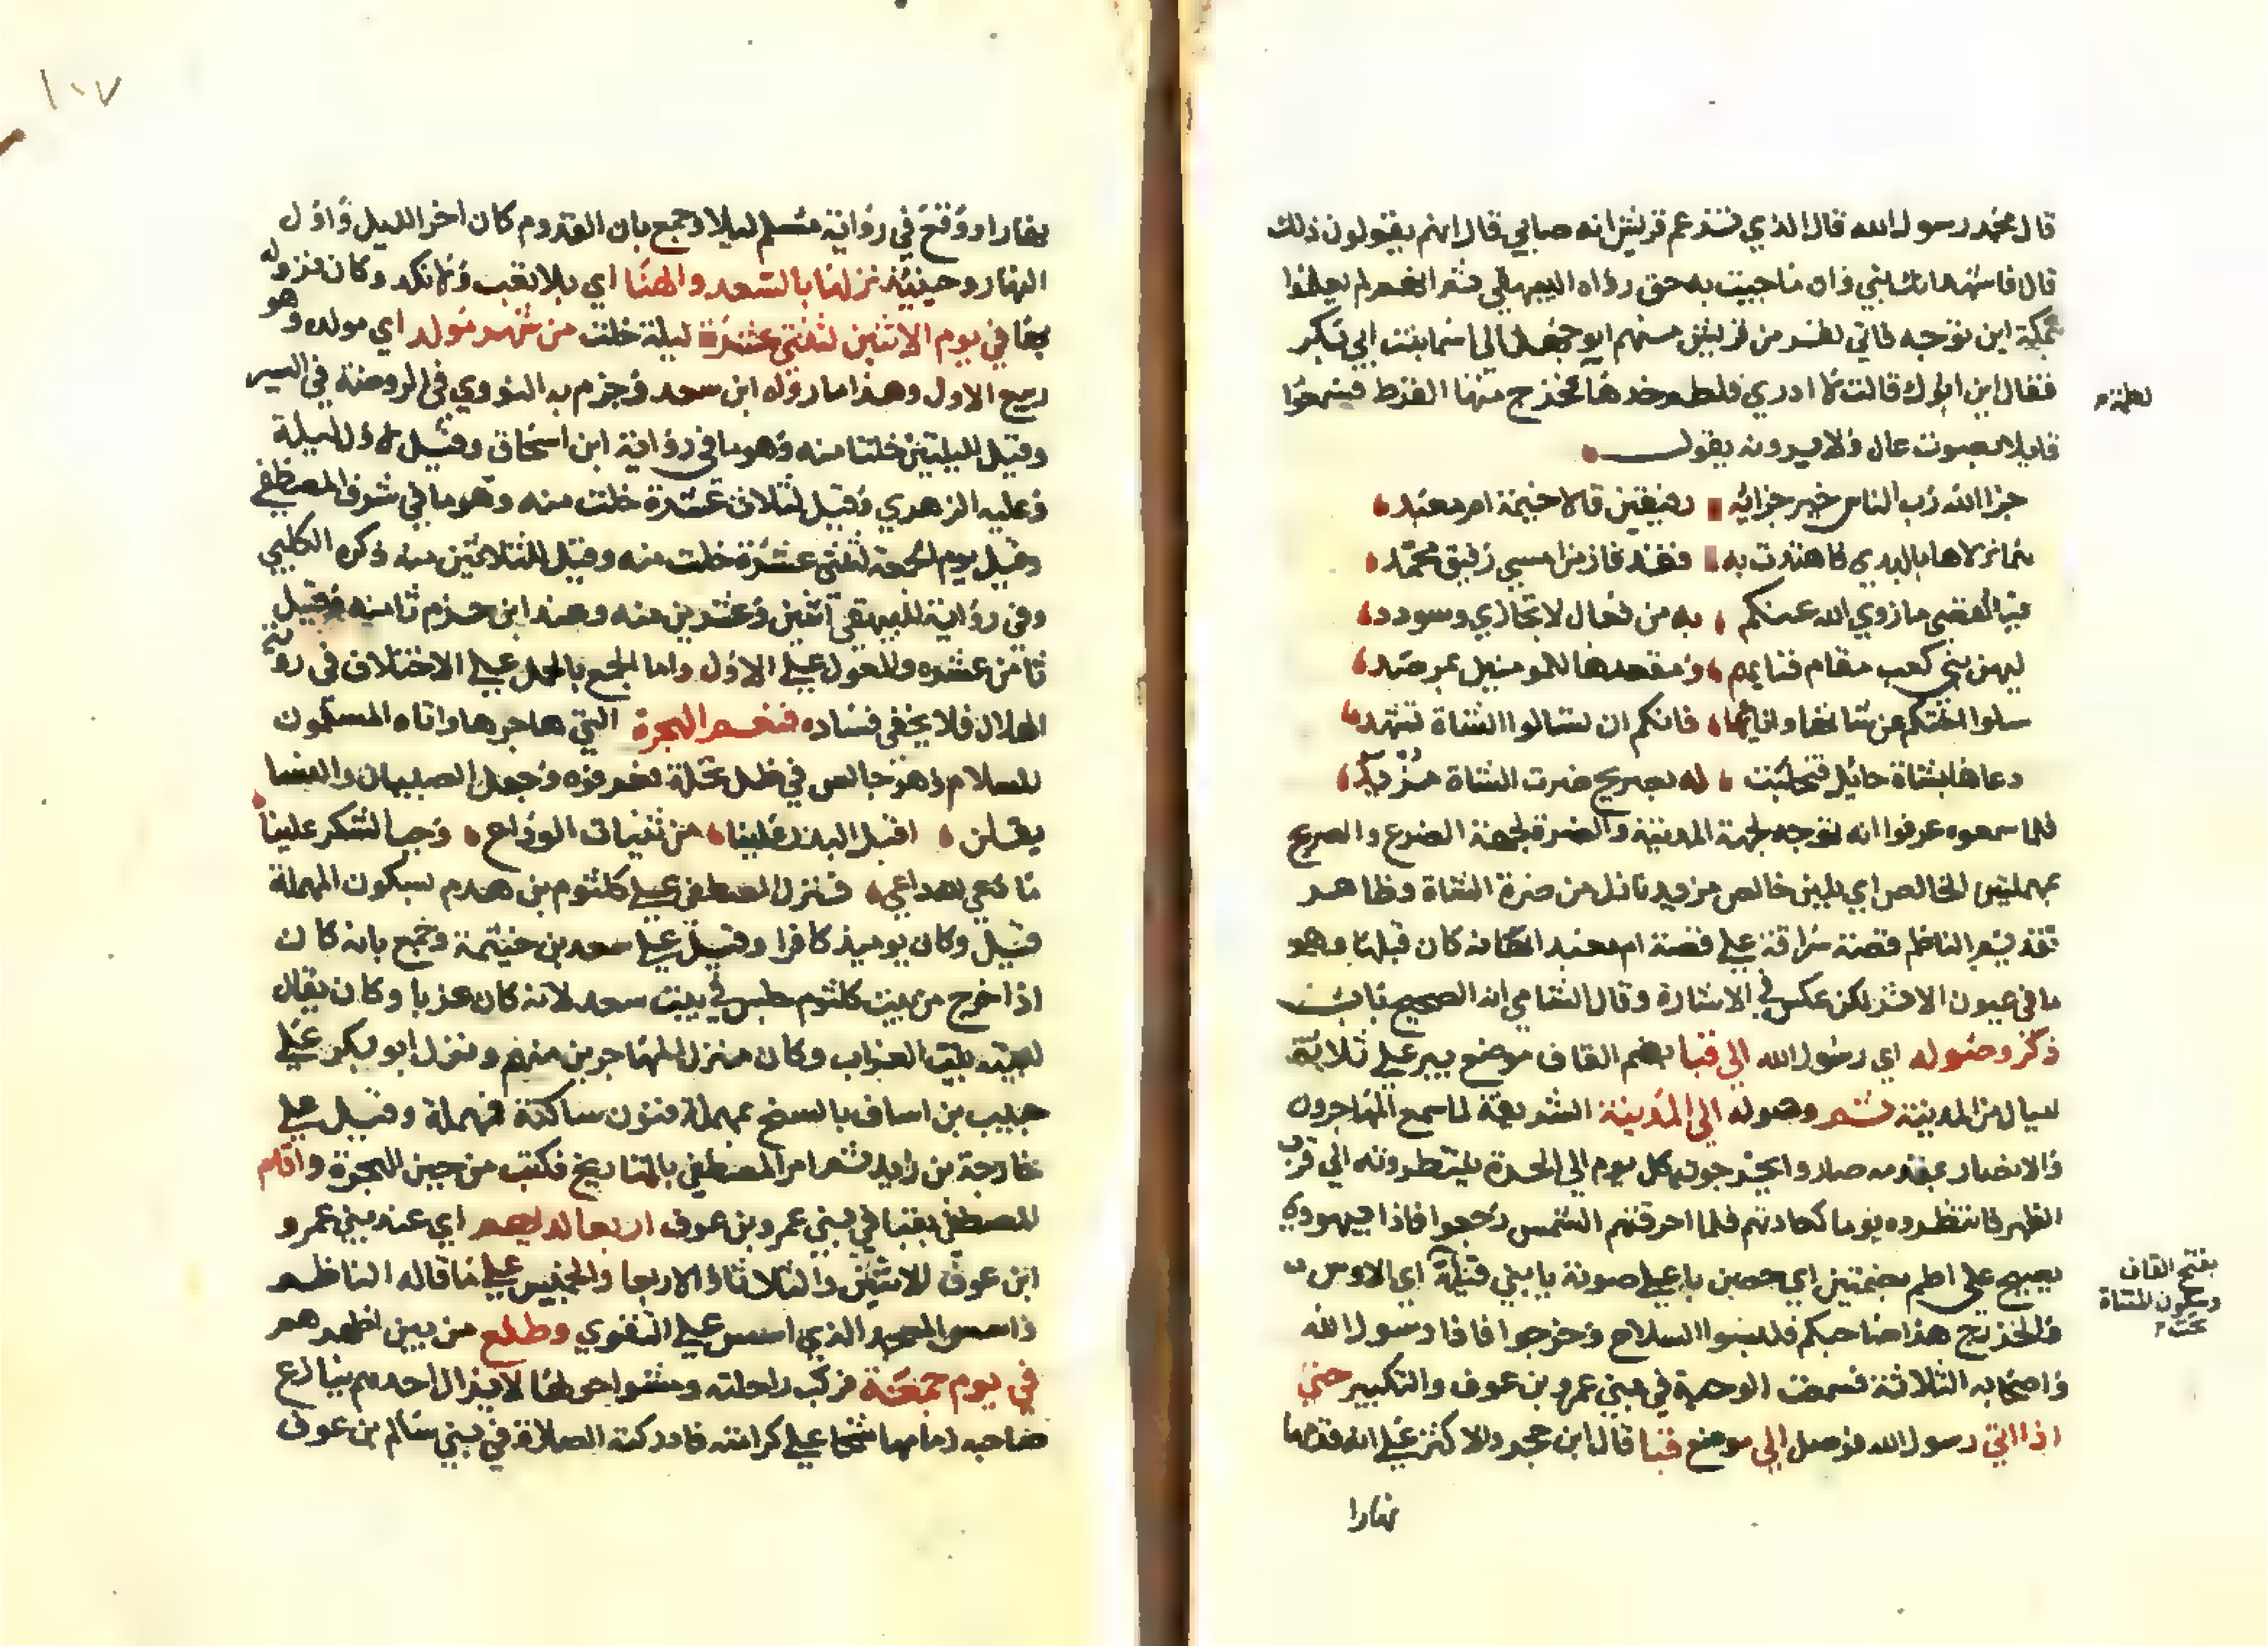 قال محمد رسول الله قال الذي تزعم قريش انه صابي قال انهم يقولون ذلك
قال فاشهد انك نبي وان ما جيت به حق رواه البيهقي ثم انهم لم يعلموا
بمكة اين توجه فاتي نفر من قريش منهم ابو جهل الي اسما بنت ابي بكر
فقال اين ابوك قالت لا ادري فلطم خدها فخرج منها القرط فسمعوا
قايلا بصوت عال ولا يرونه يقول
جزا الله رب الناس خير جزائه رفيقين قالا خيمتي ام معبد
هما نزلاها بالهدي فاهتدت به فقد فاز من امسي رفيق محمد
فيا لقصي ما زوي الله عنكم به من فعال لا تجازي وسودد
ليهن بني كعب مقام فتاتهم ومقعدها للمومنين بمرصد
سلوا اختكم عن شاتها وانائها فانكم ان تسالوا الشاة تشهد
دعاها بشاة حائل فتحلبت له بصريح ضرت الشاة مزبد
فلما سمعوه عرفوا انه توجه لجهة المدينة والضرة لحمة الضرع والصريح
بمهملتين الخالص اي بلبن خالص مزبد نازل من ضرة الشاة وظاهر
تقديم الناظم قصة سراقة علي قصة ام معبد انها كان قبلها وهو
ما في عيون الاثر لكن عكس في الاشارة وقال الشامي انه الصحيح باب
ذكر وصوله اي رسول الله الي قبا بضم القاف موضع ببير علي ثلاثة
اميال من المدينة ثم وصوله الي المدينة الشريفة لما سمع المهاجرون
والانصار بمقدمه صاروا يخرجون كل يوم الي الحرة ينتظرونه الي قرب
الظهر فانتظروه يوما كعادتهم فلما احرقتهم الشمس رجعوا فاذا بيهودي
يصيح علي اطم بضمتين اي حصن باعلي صوته يا بني قيلة اي الاوس
والخزرج هذا صاحبكم فلبسوا السلاح وخرجوا فاذا رسول الله
واصحابه الثلاثة فسمعت الوجبة في بني عمرو بن عوف والتكبير حتي
اذا اتي رسول الله فوصل الي موضع قبا قال ابن حجر والاكثر علي انه قدمها
نهارا
بفتح القاف
وسكون المثناة
تحت
١٠٧
نهارا ووقع في رواية مسلم ليلا وجمع بان القدوم كان اخر الليل واول
النهار وحينيذ نزلها بالسعد والهنا اي بلا تعب ولا نكد وكان نزوله
بها في يوم الاثنين لثنتي عشرة ليلة خلت من شهر مولد اي مولده وهو
ربيع الاول وهذا ما رواه ابن سعد وجزم به النووي في الروضة في السير
وقيل لليلتين خلتا منه وهو ما في رواية ابن اسحاق وقيل لاول ليلة
وعليه الزهري وقيل لثلاث عشرة خلت منه وهو ما في شرف المصطفي
وقيل يوم الجمعة لثنتي عشرة خلت منه وقيل لثلاثين منه ذكره الكلبي
وفي رواية للبيهقي اثنين وعشرين منه وعند ابن حزم ثامنه وقيل
ثامن عشره والمعول علي الاول واما الجمع بالحمل علي الاختلاف في روية
الهلال فلا يخفي فساده فنعم الهجرة التي هاجرها واتاه المسلمون
للسلام وهو جالس في ظل نخلة فعرفوه وجعل الصبيان والنسا
يقلن اقبل البدر علينا من ثنيات الوداع وجب الشكر علينا
ما دعي لله داعي فنزل المصطفي علي كلثوم بن هدم بسكون المهملة
قيل وكان يوميذ كافرا وقيل علي سعد بن خيثمة وجمع بانه كان
اذا خرج من بيت كلثوم جلس في بيت سعد لانه كان عزبا وكان يقال
لبيته بيت العزاب وكان منزل المهاجرين منهم ونزل ابو بكر علي
حبيب بن اساف بالسنح بمهملة فنون ساكنة فمهملة وقيل علي
خارجة بن زيد ثم امر المصطفي بالتاريخ فكتب من حين الهجرة واقام
المصطفي بقبا في بني عمرو بن عوف اربعا لديهم اي عند بني عمرو
ابن عوف الاثنين والثلاثا والاربعا والخميس علي ما قاله الناظم
واسس المسجد الذي اسس علي التقوي وطلع من بين اظهرهم
في يوم جمعة فركب راحلته ومشوا حولها لا يزال احدهم ينازع
صاحبه زمامها شحا علي كرامته فادركته الصلاة في بني سالم بن عوف